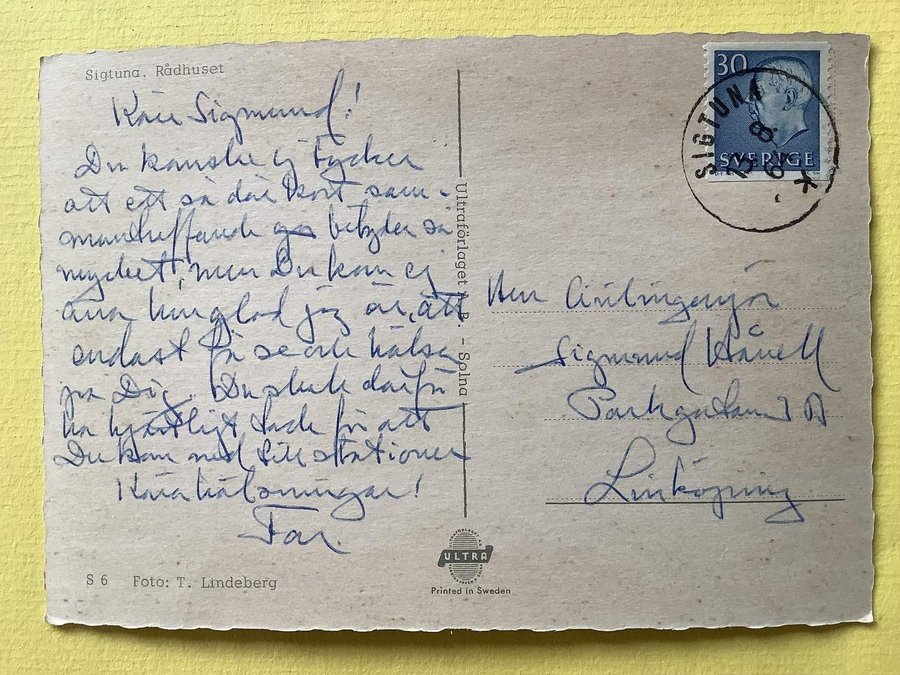 Sigtuna. Rådhuset
Käre Sigmund!
Du kanske ej tycker
att ett så där kort sam-
manträffande betyder så
mycket, men Du kan ej
ana hur glad jag är, att
endast få se och hälsa
på Dig. Du skall därför
ha hjärtligt tack för att
Du kom ned till stationen
Kära hälsningar!
Far.
S 6 Foto: T. Lindeberg
Ultraförlaget A.B. - Solna
ULTRA
Printed in Sweden
30
SVERIGE
SIGTUNA
Herr Civilingenjör
Sigmund
Parkgatan
Linköping